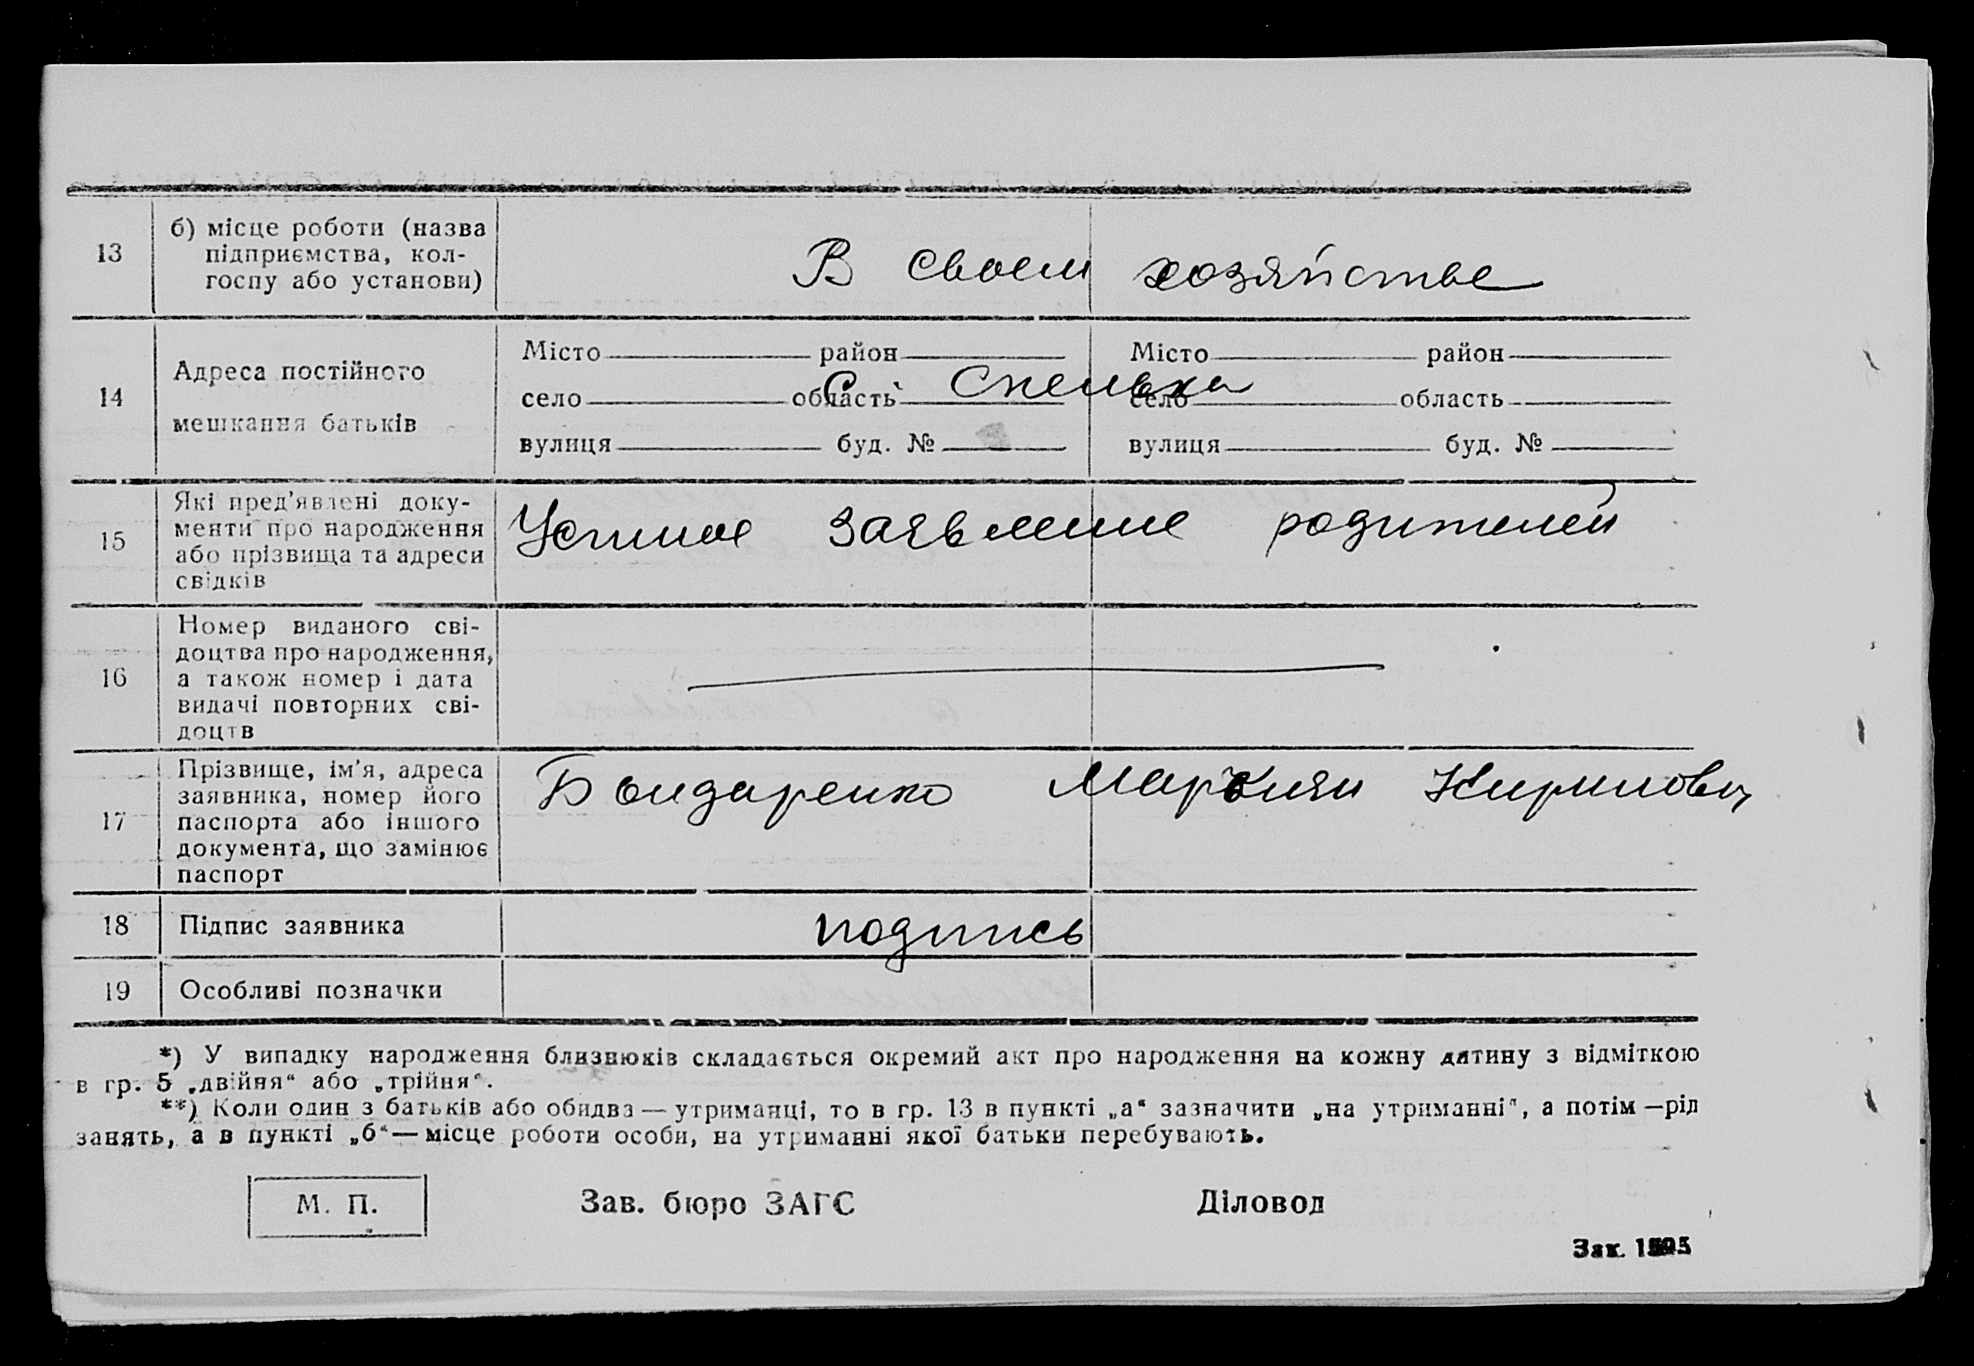 13 б) місце роботи (назва
підприємства, кол-
госпу або установи) В своем хозяйстве
14 Адреса постійного
мешкання батьків
Місто район Місто район
село область село область
С.
вулиця буд. № вулиця буд. №
15 Які пред'явлені доку-
менти про народження
або прізвища та адреси
свідків
Устное заявление родителей
16 Номер виданого сві-
доцтва про народження,
а також номер і дата
видачі повторних сві-
доцтв
17 Прізвище, ім'я, адреса
заявника, номер його
паспорта або іншого
документа, що замінює
паспорт
Бондаренко Маркиян Кирилович
18 Підпис заявника подпись
19 Особливі позначки
*) У випадку народження близнюків складається окремий акт про народження на кожну дитину з відміткою
в гр. 5 „двійня“ або „трійня“.
**) Коли один з батьків або обидва — утриманці, то в гр. 13 в пункті „а“ зазначити „на утриманні“, а потім — рід
занять, а в пункті „б“ — місце роботи особи, на утриманні якої батьки перебувають.
М. П. Зав. бюро ЗАГС Діловод
Зак.